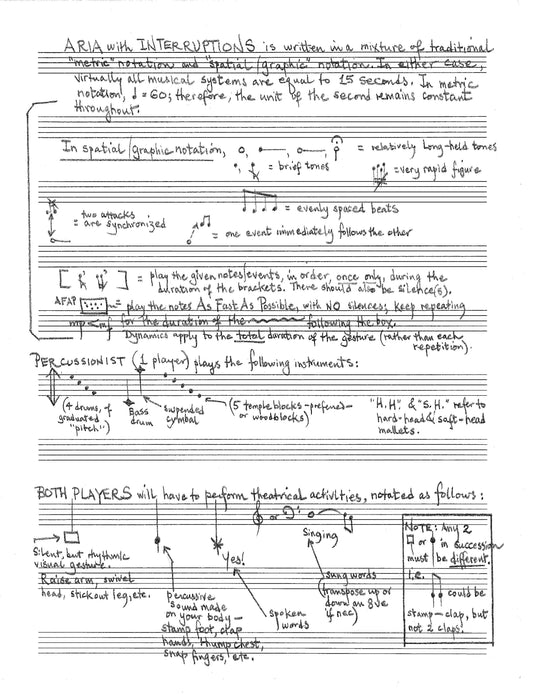 ARIA with INTERRUPTIONS is written in a mixture of traditional
"metric" notation and "spatial/graphic" notation. In either case,
virtually all musical systems are equal to 15 seconds. In metric
notation, ♩=60; therefore, the unit of the second remains constant
throughout.
In spatial/graphic notation, = relatively long-held tones
= brief tones = very rapid figure
= evenly spaced beats
two attacks
= are synchronized
= one event immediately follows the other
[ ] = play the given notes/events, in order, once only, during the
duration of the brackets. There should also be silence(s).
AFAP = play the notes As Fast As Possible, with NO silences; keep repeating
mp<mf for the duration of the following the box.
Dynamics apply to the total duration of the gesture (rather than each
repetition).
PERCUSSIONIST (1 player) plays the following instruments:
(4 drums, of
graduated
"pitch")
Bass
drum
suspended
cymbal
(5 templeblocks-preferred-
or woodblocks)
"H.H." & "S.H." refer to
hard-head & soft-head
mallets.
BOTH PLAYERS will have to perform theatrical activities, notated as follows:
Silent, but rhythmic
visual gesture.
Raise arm, swivel
head, stick out leg, etc.
percussive
sound made
on your body -
stamp foot, clap
hands, thump chest,
snap fingers, etc.
Yes!
spoken
words
or
Singing
sung words
(transpose up or
down an 8ve
if nec)
NOTE: Any 2
or in succession
must be different.
i.e.
could be
stamp-clap, but
not 2 claps.